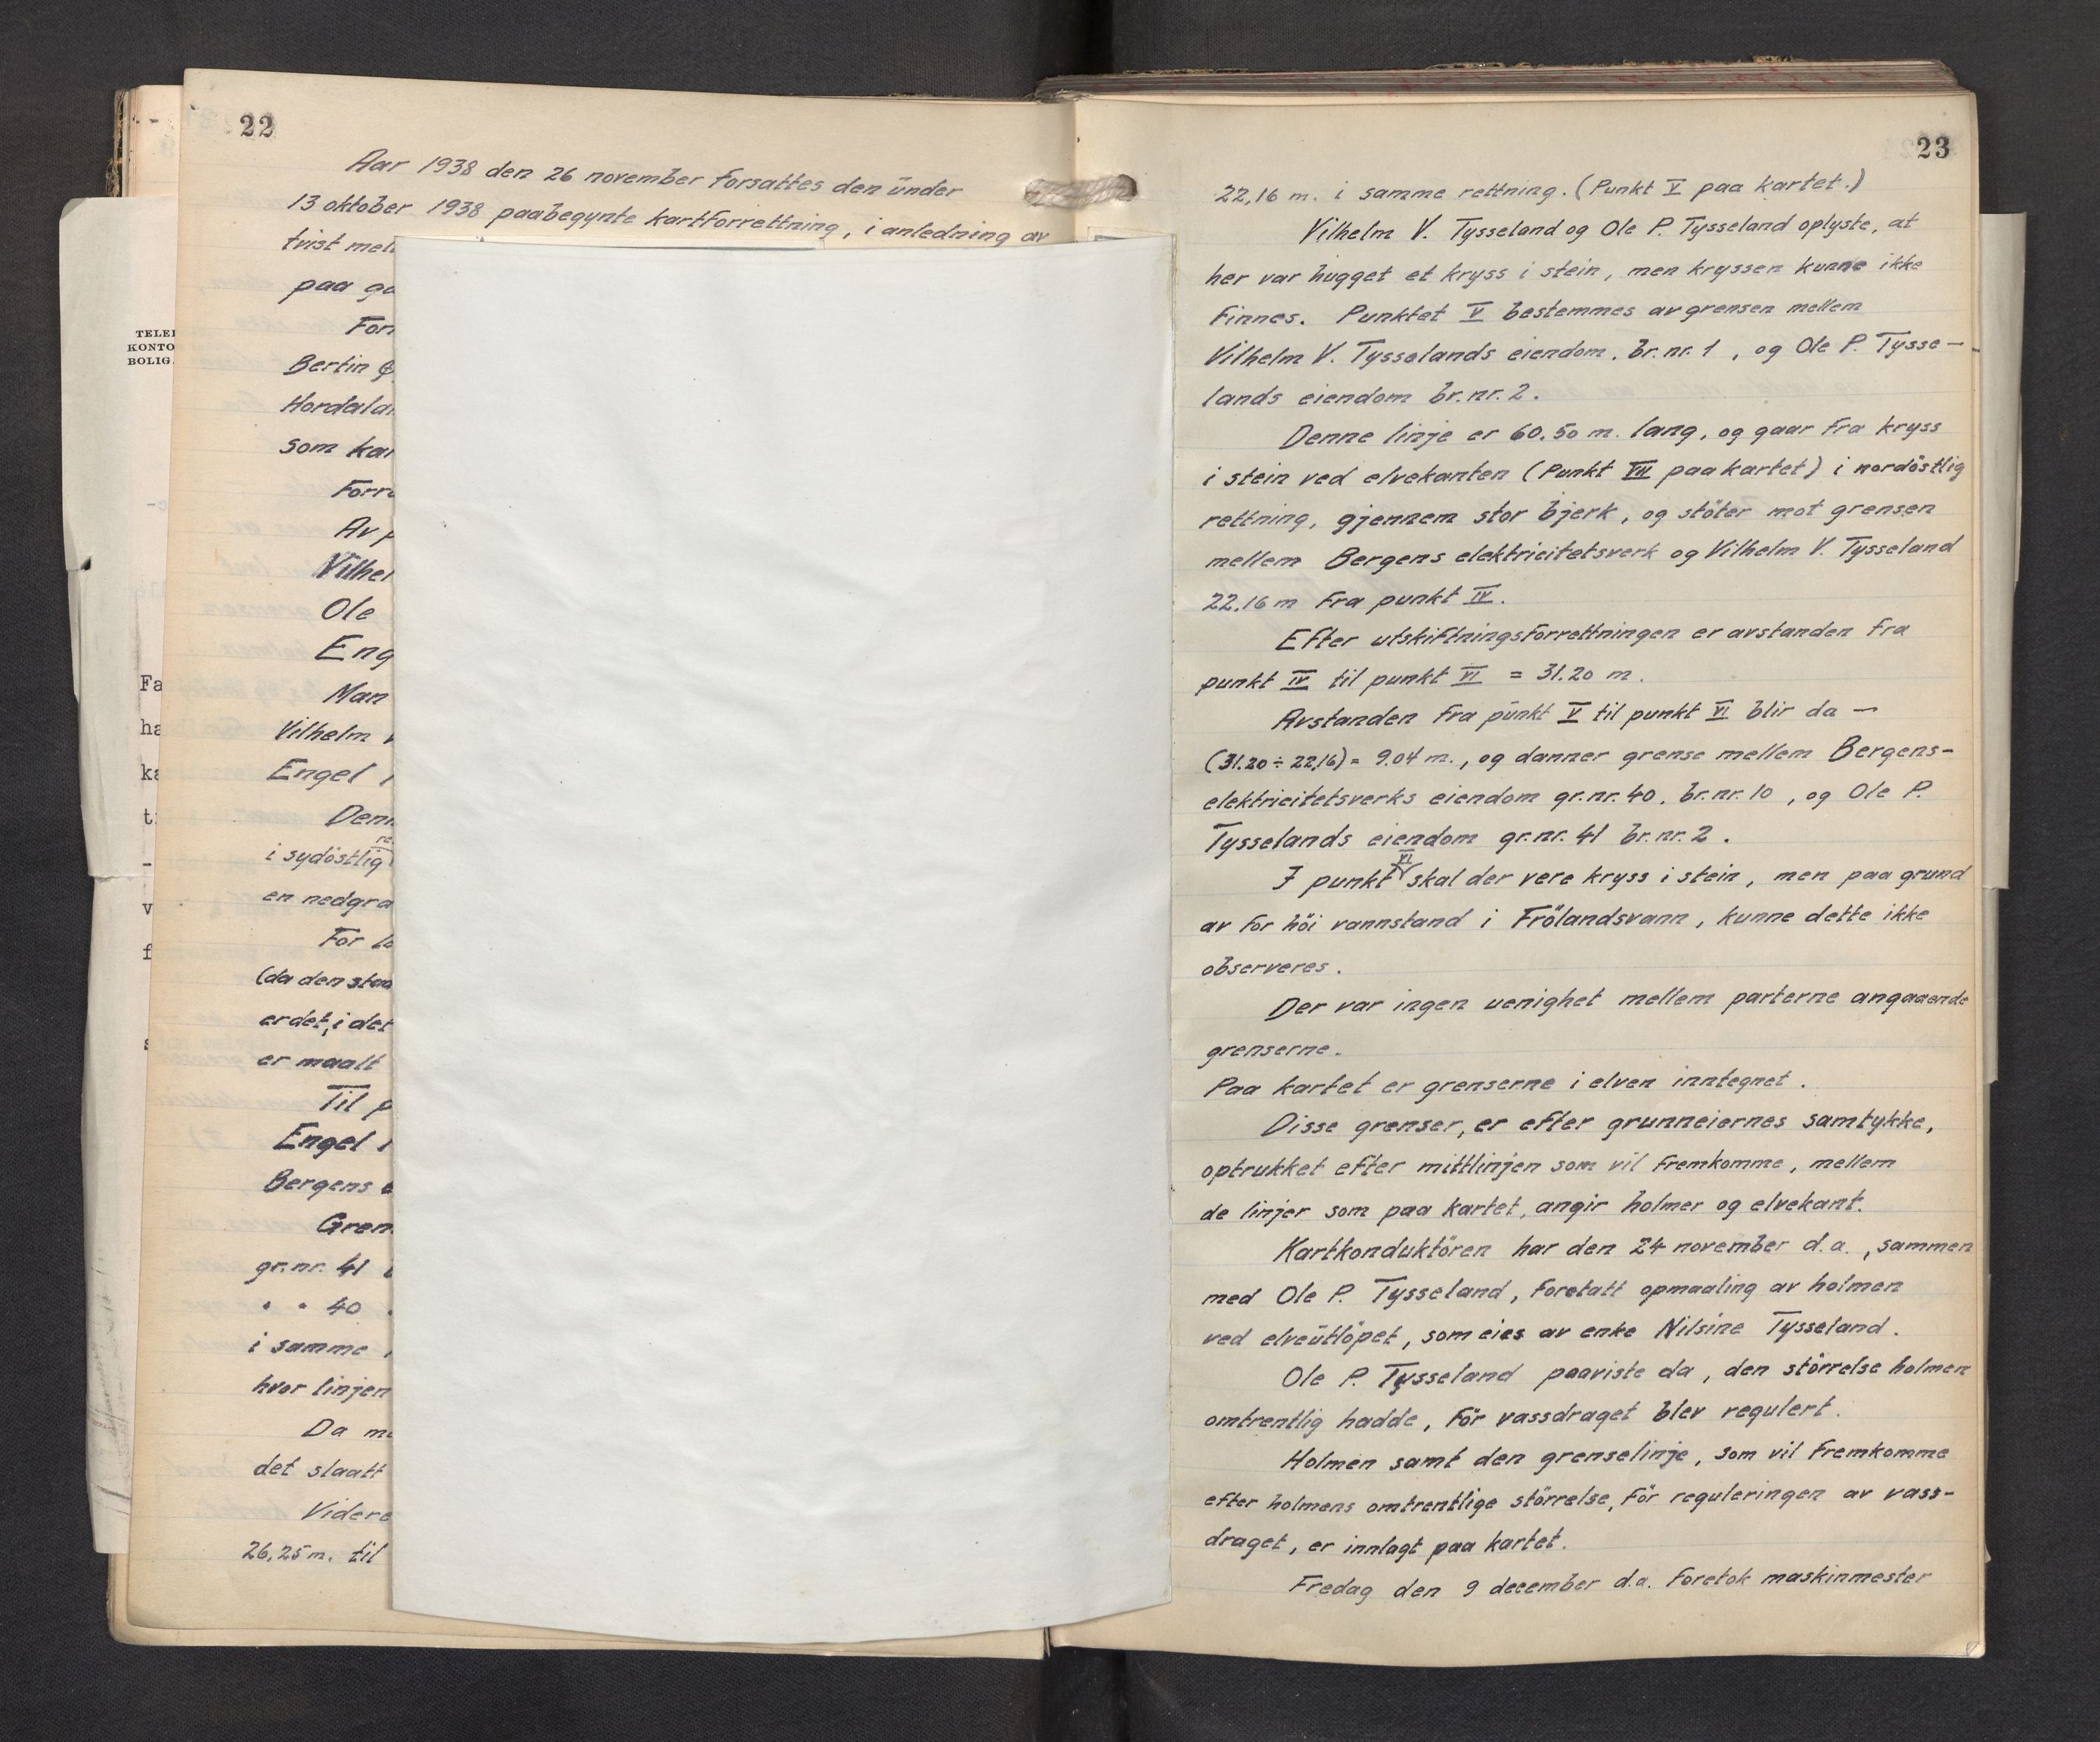 22
Aar 1938 den 26 november forsattes den ünder
13 oktober 1938 paabegynte kartforrettning, i anledning av
tvist mell
paa ga
For
Bertin
Hordalan
som kar
Forre
Av p
Vilhel
Ole
Eng
Man
Vilhelm V
Engel
Denn
i sydöstlig
en nedgra
For
(da den staa
er det, i det
er maalt
Til p
Engel
Bergens e
Gren
gr.nr. 41
" " 40
i samme
hvor linjen
Da m
det slaatt
Videre
26,25 m. til
TELEF
KONTO
BOLIG
Fa
ha
ka
t
-
v
f
s
23
22,16 m. i samme rettning. (Punkt V paa kartet.)
Vilhelm V. Tysseland og Ole P. Tysseland oplyste, at
her var hugget et kryss i stein, men kryssen kunne ikke
finnes. Punktet V bestemmes av grensen mellem
Vilhelm V. Tysselands eiendom, br. nr. 1, og Ole P. Tysse-
lands eiendom br. nr. 2.
Denne linje er 60.50 m. lang, og gaar fra kryss
i stein ved elvekanten (Punkt VII paa kartet) i nordöstlig
rettning, gjennem stor bjerk, og stöter mot grensen
mellem Bergens elektricitetsverk og Vilhelm V. Tysseland
22.16 m fra punkt IV.
Efter utskiftningsforrettningen er avstanden fra
punkt IV til punkt VI = 31.20 m.
Avstanden fra pünkt V til punkt VI blir da -
(31.20 ÷ 22,16) = 9.04 m., og danner grense mellem Bergens-
elektricitetsverks eiendom gr.nr. 40, br.nr. 10, og Ole P.
Tysselands eiendom gr.nr. 41 br. nr. 2.
I punkt VI skal der vere kryss i stein, men paa grund
av for höi vannstand i Frölandsvann, kunne dette ikke
observeres.
Der var ingen uenighet mellem parterne angaaende
grenserne.
Paa kartet er grenserne i elven inntegnet.
Disse grenser, er efter grunneiernes samtykke,
optrukket efter mittlinjen som vil fremkomme, mellem
de linjer som paa kartet, angir holmer og elvekant.
Kartkonduktören har den 24 november d.a., sammen
med Ole P. Tysseland, foretatt opmaaling av holmen
ved elveütlöpet, som eies av enke Nilsine Tysseland.
Ole P. Tysseland paaviste da, den störrelse holmen
omtrentlig hadde, för vassdraget blev regulert.
Holmen samt den grenselinje, som vil fremkomme
efter holmens omtrentlige störrelse, för reguleringen av vass-
draget, er innlagt paa kartet.
Fredag den 9 december d.a. foretok maskinmester